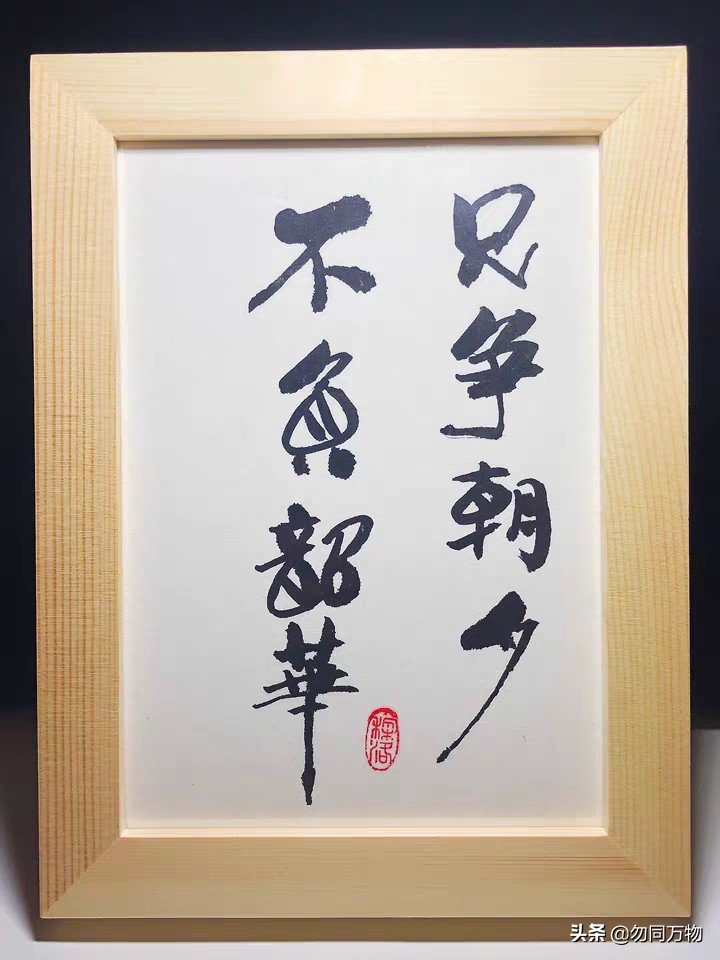 只争朝夕
不負韶華
头条 @勿同万物